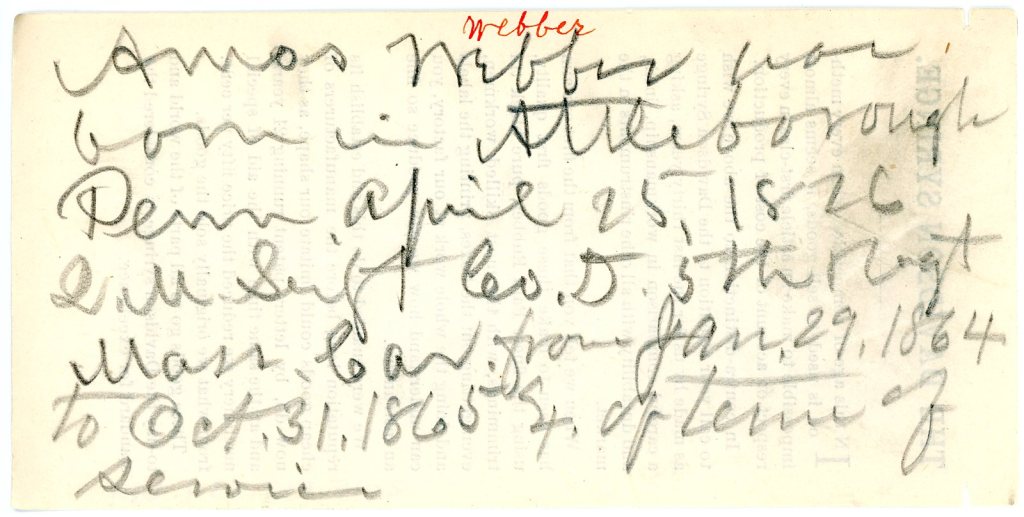 Webber
Amos Webber was
born in Attleborough
Penn. April 25, 1826
Q. M. Sergt Co. D. 5th Regt
Mass. Cav. from Jan. 29, 1864
to Oct. 31. 1865 of term of
service